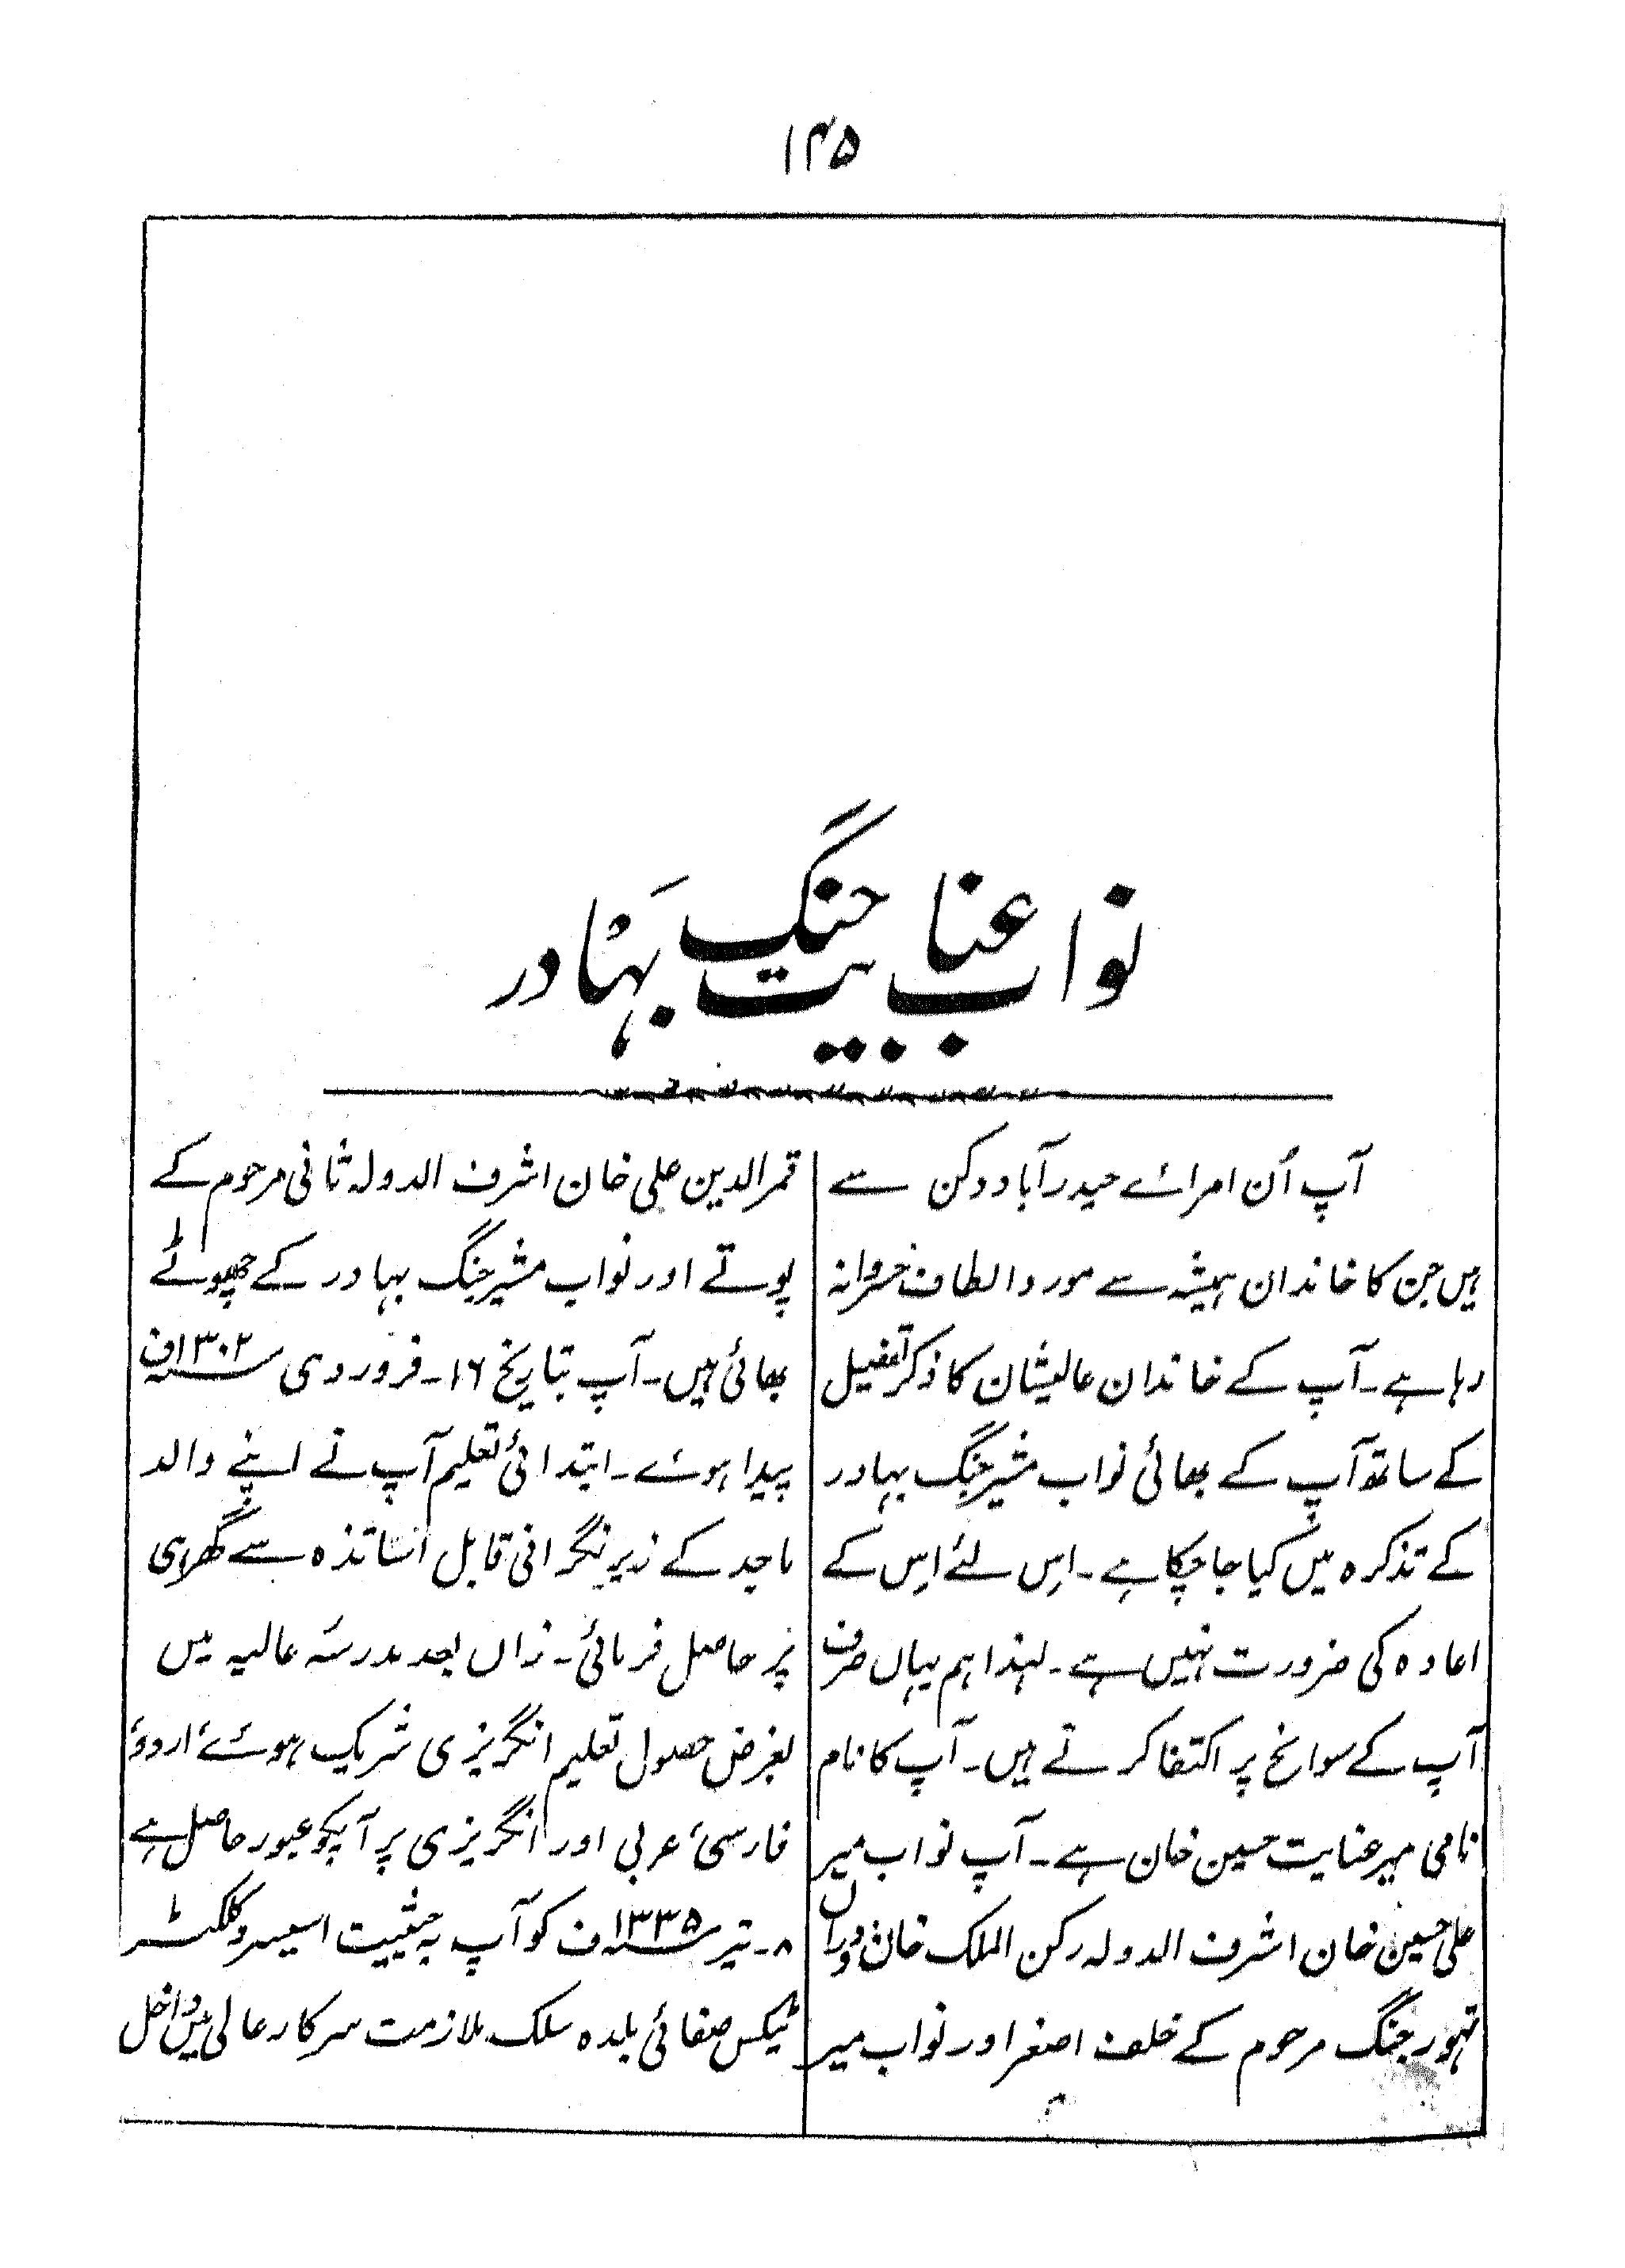 ۱۴۵
نواب عنایت جنگ بہادر
آپ اُن امرائے حیدرآباد دکن سے
ہیں جن کا خاندان ہمیشہ سے مورد الطاف خسروانہ
رہا ہے۔ آپ کے خاندان عالیشان کا ذکر تفصیل
کے ساتھ آپ کے بھائی نواب مشیر جنگ بہادر
کے تذکرہ میں کیا جا چکا ہے۔ اس لئے اس کے
اعادہ کی ضرورت نہیں ہے۔ لہذا ہم یہاں صرف
آپ کے سوانح پر اکتفا کرتے ہیں۔ آپ کا نام
نامی میر عنایت حسین خان ہے۔ آپ نواب میر
علی حسین خان اشرف الدولہ رکن الملک خان دوراں
تہور جنگ مرحوم کے خلف اصغر اور نواب میر
قمر الدین علی خان اشرف الدولہ ثانی مرحوم کے
پوتے اور نواب مشیر جنگ بہادر کے چھوٹے
بھائی ہیں۔ آپ بتاریخ ۱۶۔ فروردی سنہ ۱۳۰۲ف
پیدا ہوئے۔ ابتدائی تعلیم آپ نے اپنے والد
ماجد کے زیر نگرانی قابل اساتذہ سے گھر ہی
پر حاصل فرمائی۔ زاں بعد مدرسۂ عالیہ میں
بغرض حصول تعلیم انگریزی شریک ہوئے اردو،
فارسی، عربی اور انگریزی پر آپکو عبور حاصل ہے
۸۔ تیر سنہ ۱۳۳۵ف کو آپ بہ حیثیت اسیسر و کلکٹر
ٹیکس صفائی بلدہ سلک ملازمت سرکار عالی میں داخل